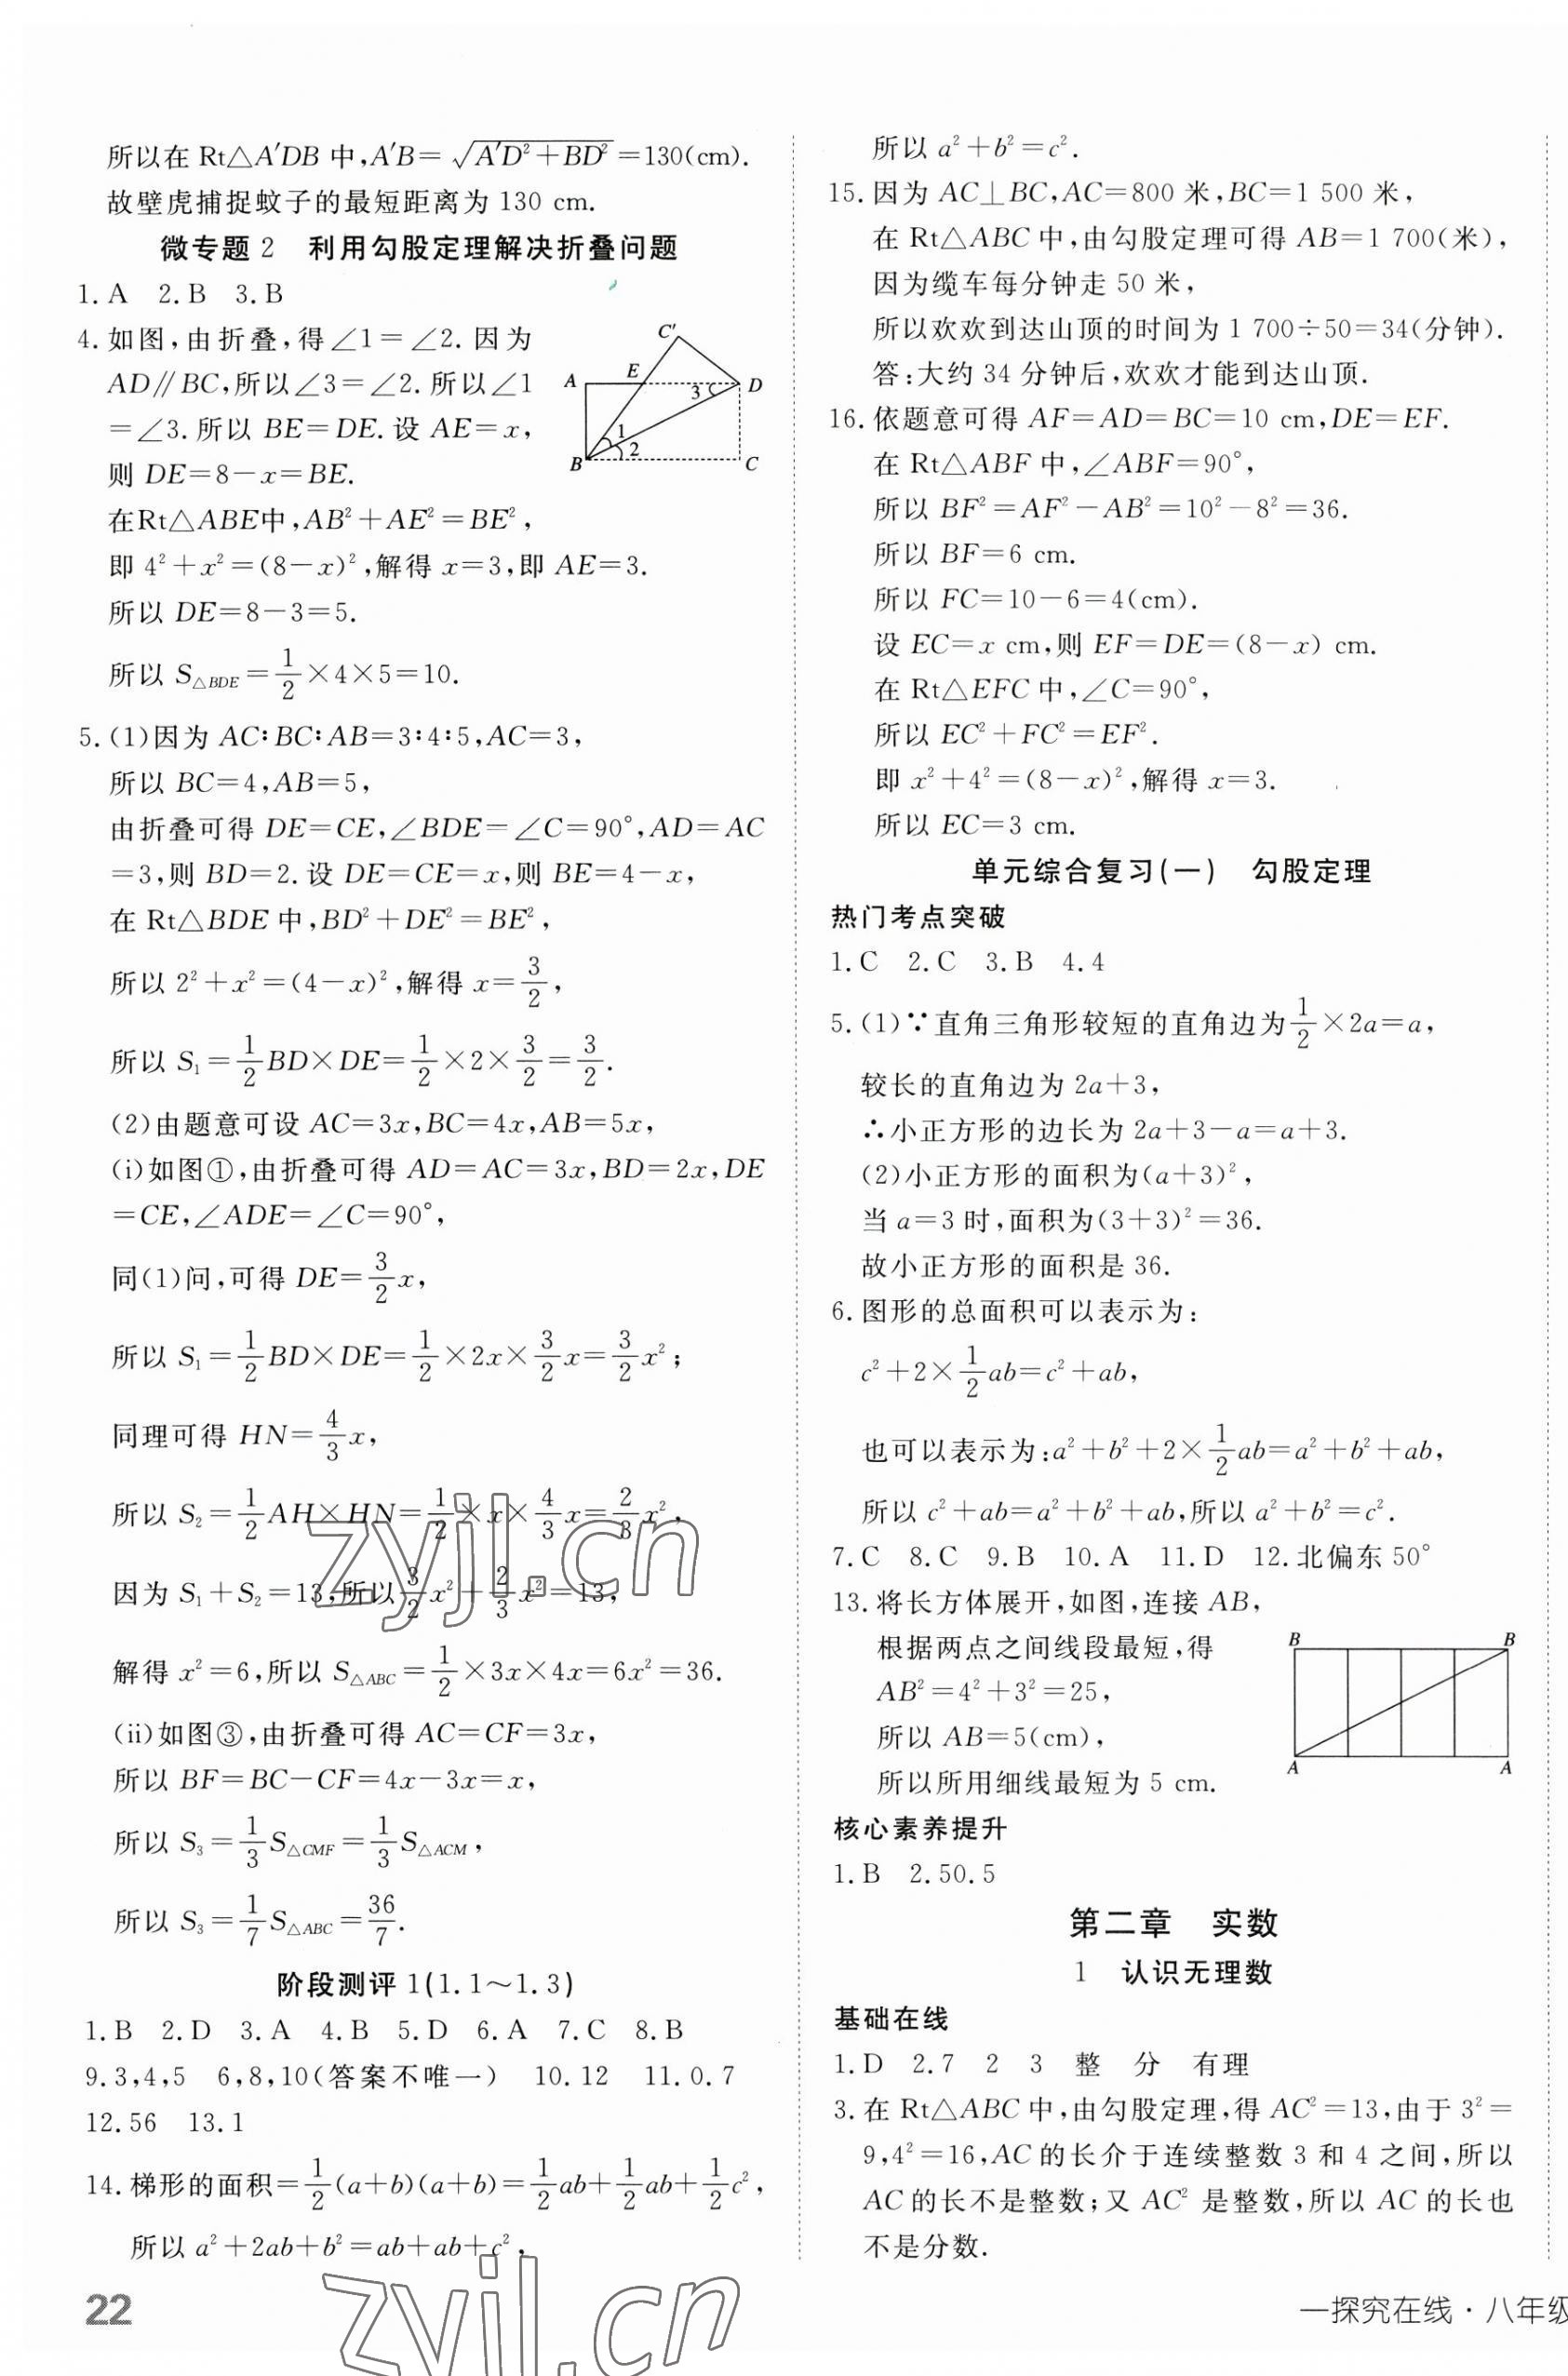 所以在 Rt△A′DB 中,A′B=√(A′D²+BD²)=130(cm).
故壁虎捕捉蚊子的最短距离为 130 cm.
微专题 2　利用勾股定理解决折叠问题
1.A　2.B　3.B
4.如图,由折叠,得∠1=∠2.因为
AD∥BC,所以∠3=∠2.所以∠1
=∠3.所以 BE=DE.设 AE=x,
则 DE=8-x=BE.
A　E　C′　D　3　1　2　B　C
在Rt△ABE中,AB²+AE²=BE²,
即 4²+x²=(8-x)²,解得 x=3,即 AE=3.
所以 DE=8-3=5.
所以 S△BDE=1/2×4×5=10.
5.(1)因为 AC∶BC∶AB=3∶4∶5,AC=3,
所以 BC=4,AB=5,
由折叠可得 DE=CE,∠BDE=∠C=90°,AD=AC
=3,则 BD=2.设 DE=CE=x,则 BE=4-x,
在 Rt△BDE 中,BD²+DE²=BE²,
所以 2²+x²=(4-x)²,解得 x=3/2,
所以 S₁=1/2BD×DE=1/2×2×3/2=3/2.
(2)由题意可设 AC=3x,BC=4x,AB=5x,
(i)如图①,由折叠可得 AD=AC=3x,BD=2x,DE
=CE,∠ADE=∠C=90°,
同(1)问,可得 DE=3/2x,
所以 S₁=1/2BD×DE=1/2×2x×3/2x=3/2x²;
同理可得 HN=4/3x,
所以 S₂=1/2AH×HN=1/2×x×4/3x=2/3x²,
因为 S₁+S₂=13,所以3/2x²+2/3x²=13,
解得 x²=6,所以 S△ABC=1/2×3x×4x=6x²=36.
(ii)如图③,由折叠可得 AC=CF=3x,
所以 BF=BC-CF=4x-3x=x,
所以 S₃=1/3S△CMF=1/3S△ACM,
所以 S₃=1/7S△ABC=36/7.
阶段测评 1(1.1～1.3)
1.B　2.D　3.A　4.B　5.D　6.A　7.C　8.B
9.3,4,5　6,8,10(答案不唯一)　10.12　11.0.7
12.56　13.1
14.梯形的面积=1/2(a+b)(a+b)=1/2ab+1/2ab+1/2c²,
所以 a²+2ab+b²=ab+ab+c²,
22
所以 a²+b²=c².
15.因为 AC⊥BC,AC=800 米,BC=1 500 米,
在 Rt△ABC 中,由勾股定理可得 AB=1 700(米),
因为缆车每分钟走 50 米,
所以欢欢到达山顶的时间为 1 700÷50=34(分钟).
答:大约 34 分钟后,欢欢才能到达山顶.
16.依题意可得 AF=AD=BC=10 cm,DE=EF.
在 Rt△ABF 中,∠ABF=90°,
所以 BF²=AF²-AB²=10²-8²=36.
所以 BF=6 cm.
所以 FC=10-6=4(cm).
设 EC=x cm,则 EF=DE=(8-x) cm.
在 Rt△EFC 中,∠C=90°,
所以 EC²+FC²=EF².
即 x²+4²=(8-x)²,解得 x=3.
所以 EC=3 cm.
单元综合复习(一)　勾股定理
热门考点突破
1.C　2.C　3.B　4.4
5.(1)∵直角三角形较短的直角边为1/2×2a=a,
较长的直角边为 2a+3,
∴小正方形的边长为 2a+3-a=a+3.
(2)小正方形的面积为(a+3)²,
当 a=3 时,面积为(3+3)²=36.
故小正方形的面积是 36.
6.图形的总面积可以表示为:
c²+2×1/2ab=c²+ab,
也可以表示为:a²+b²+2×1/2ab=a²+b²+ab,
所以 c²+ab=a²+b²+ab,所以 a²+b²=c².
7.C　8.C　9.B　10.A　11.D　12.北偏东50°
13.将长方体展开,如图,连接 AB,
根据两点之间线段最短,得
AB²=4²+3²=25,
所以 AB=5(cm),
所以所用细线最短为 5 cm.
B　B　A　A
核心素养提升
1.B　2.50.5
第二章　实数
1　认识无理数
基础在线
1.D　2.7　2　3　整　分　有理
3.在 Rt△ABC 中,由勾股定理,得 AC²=13,由于 3²=
9,4²=16,AC 的长介于连续整数 3 和 4 之间,所以
AC 的长不是整数;又 AC² 是整数,所以 AC 的长也
不是分数.
一探究在线·八年级
zyjl.cn
zyjl.cn